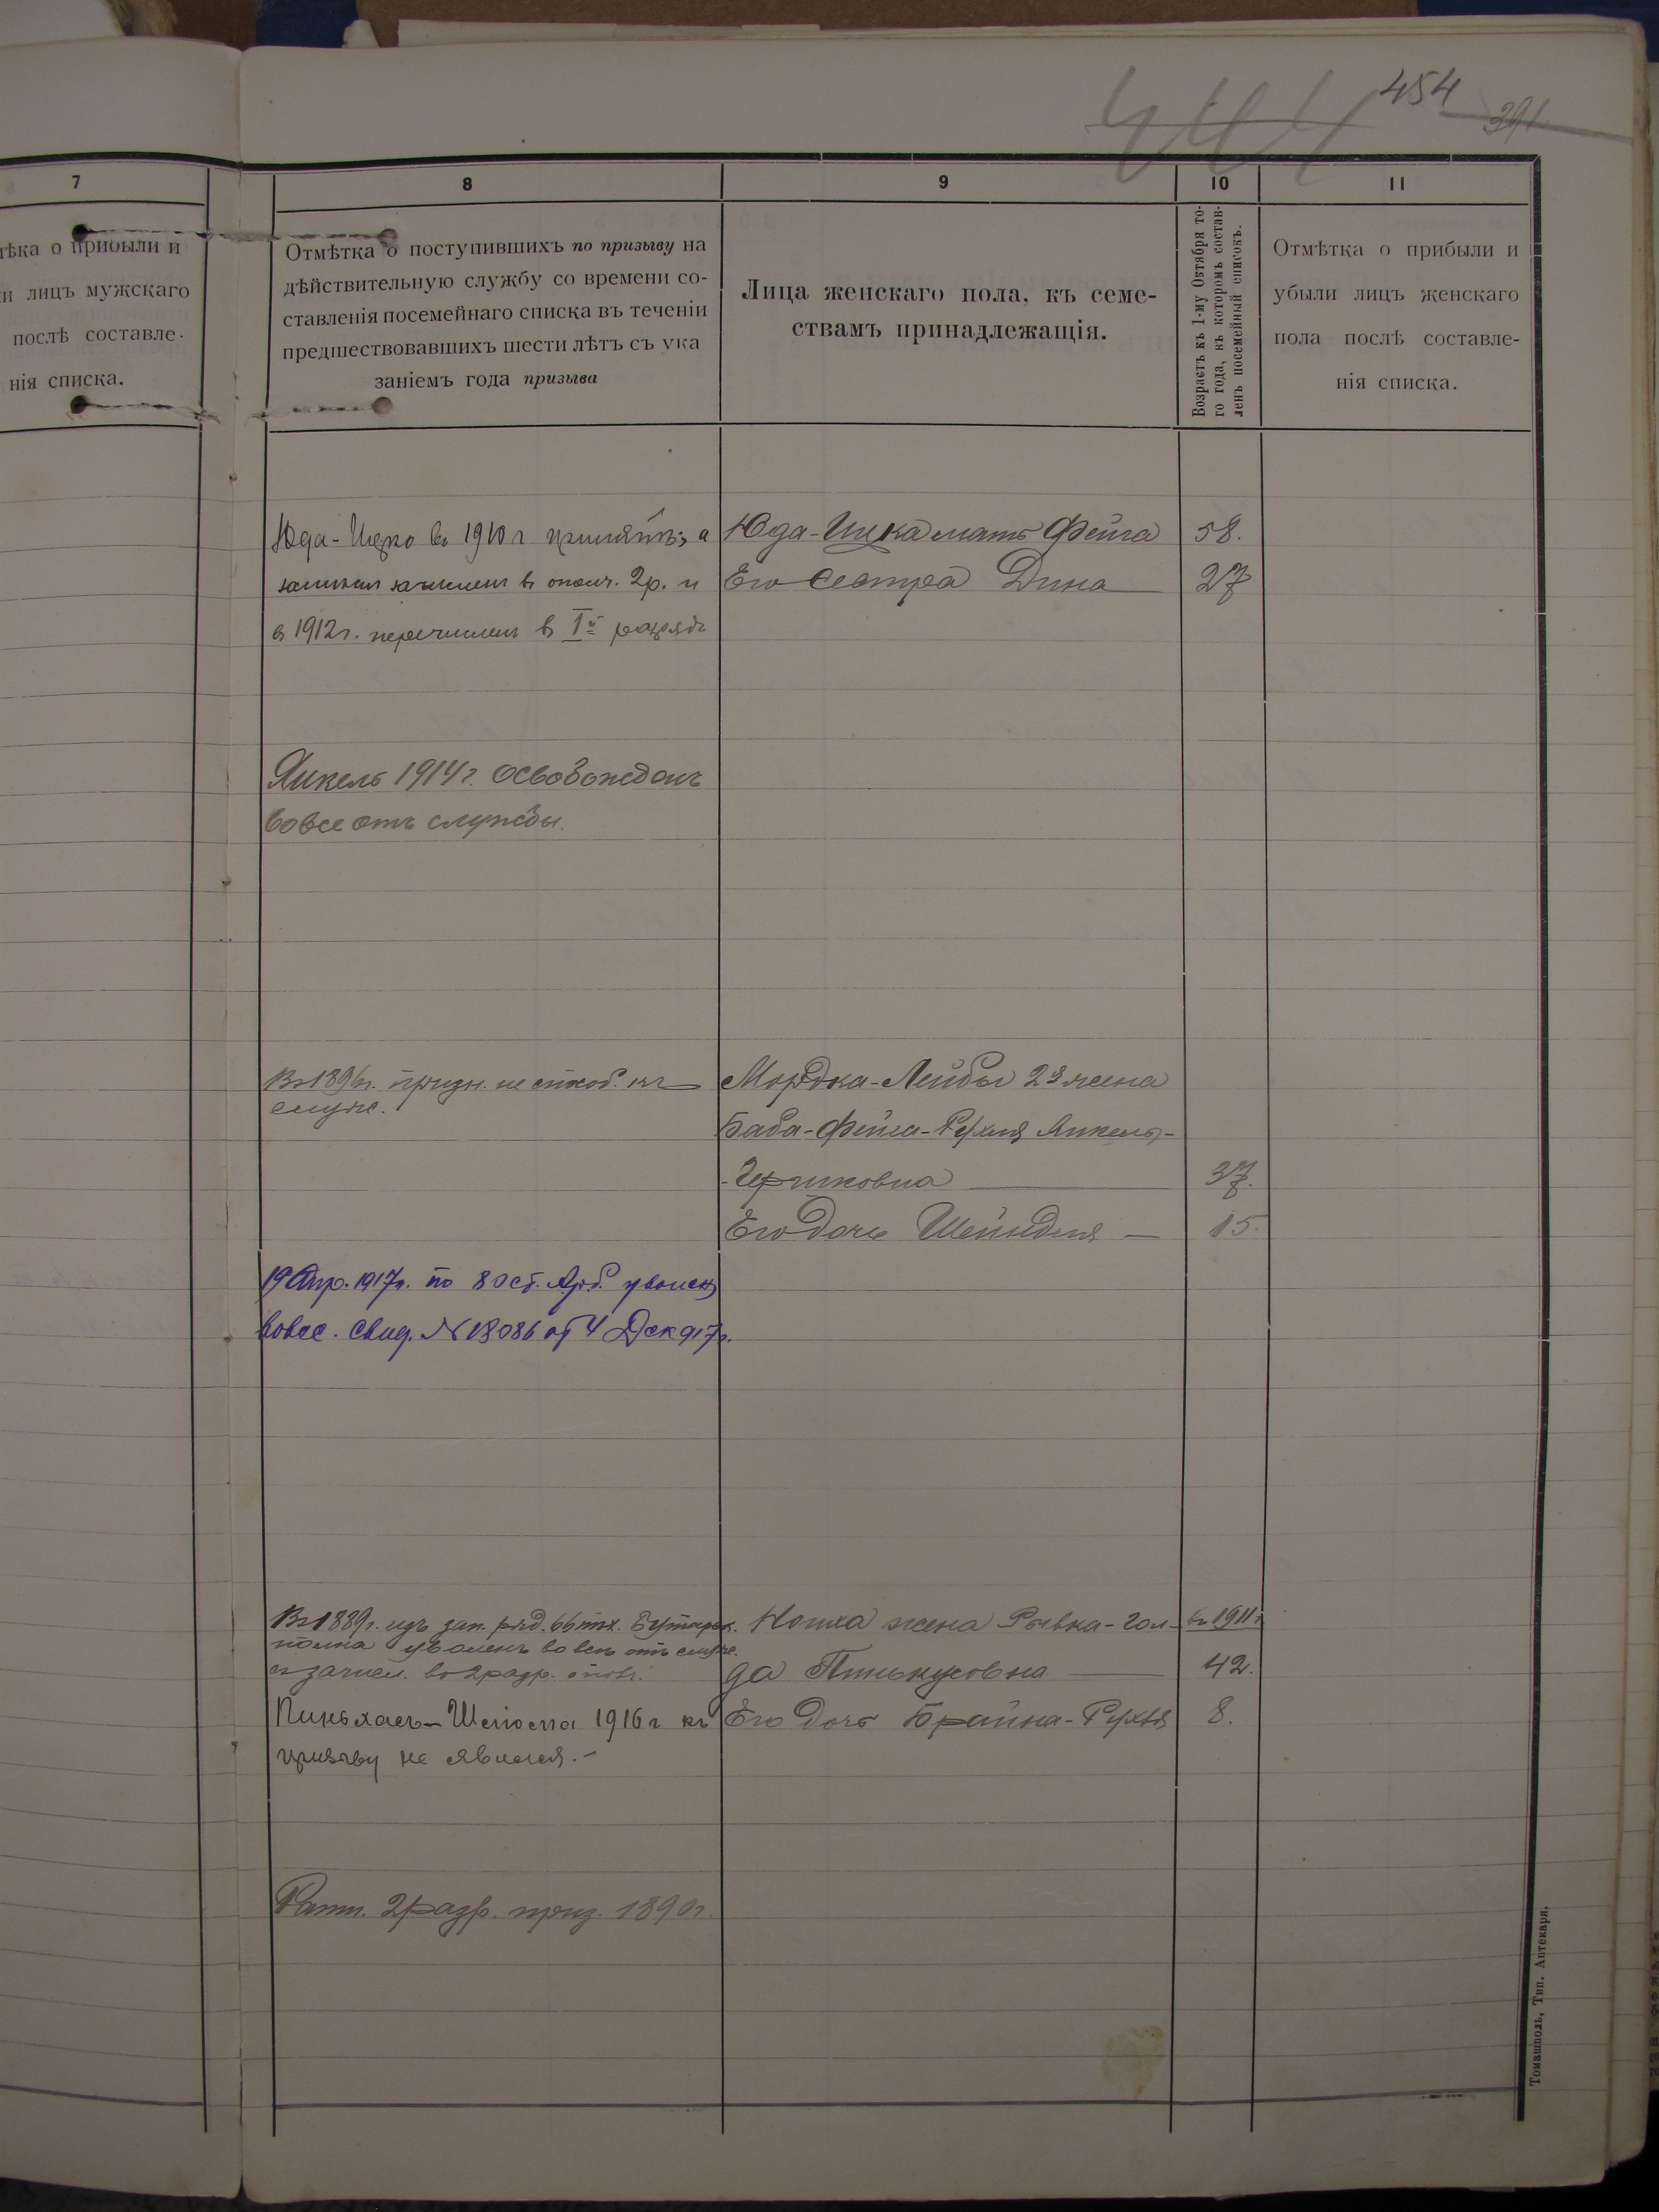 454
391
7
8
9
10
11
ѣка о прибыли и
и лицъ мужскаго
послѣ составле-
нія списка.
Отмѣтка о поступившихъ по призыву на
дѣйствительную службу со времени со-
ставленія посемейнаго списка въ теченіи
предшествовавшихъ шести лѣтъ съ ука
заніемъ года призыва
Лица женскаго пола, къ семе-
ствамъ принадлежащія.
Возрастъ къ 1-му Октября то-
го года, въ которомъ состав-
ленъ посемейный списокъ.
Отмѣтка о прибыли и
убыли лицъ женскаго
пола послѣ составле-
нія списка.
Юда-Ицко въ 1910 г принятъ, а
зачислен в ополч. 2р. и
в 1912г. перечислен в Iй разрядъ
Юда-Ицка мать Фейга 58.
Его сестра Дина 27
Янкель 1914 г. освобожденъ
вовсе отъ службы.
В 1896г. призн. не способ. къ
служ.
Мордка-Лейбы 2я жена
Баба-Фейга-Рухля Янкель-
-Гершковна 37.
Его дочь Шейндля — 15.
19 Апр. 1917г. по 80 ст. уволен
вовсе. Свид. № 18086 от 4 Дек 917г.
В 1889г. изъ зап. ряд. 66 пх. Бутырск.
полка уволенъ вовсе отъ служ.
и зачисл. во 2 разр. опол.
Пинхасъ-Шелома 1916 г къ
призыву не явился.-
жена Рывка-Гол- въ 1911 г
да Пинькусовна 42.
Его дочь Брайна-Рухля 8.
Ратн. 2 разр. приз. 1890г.
Томашполь, Тип. Аптекаря.